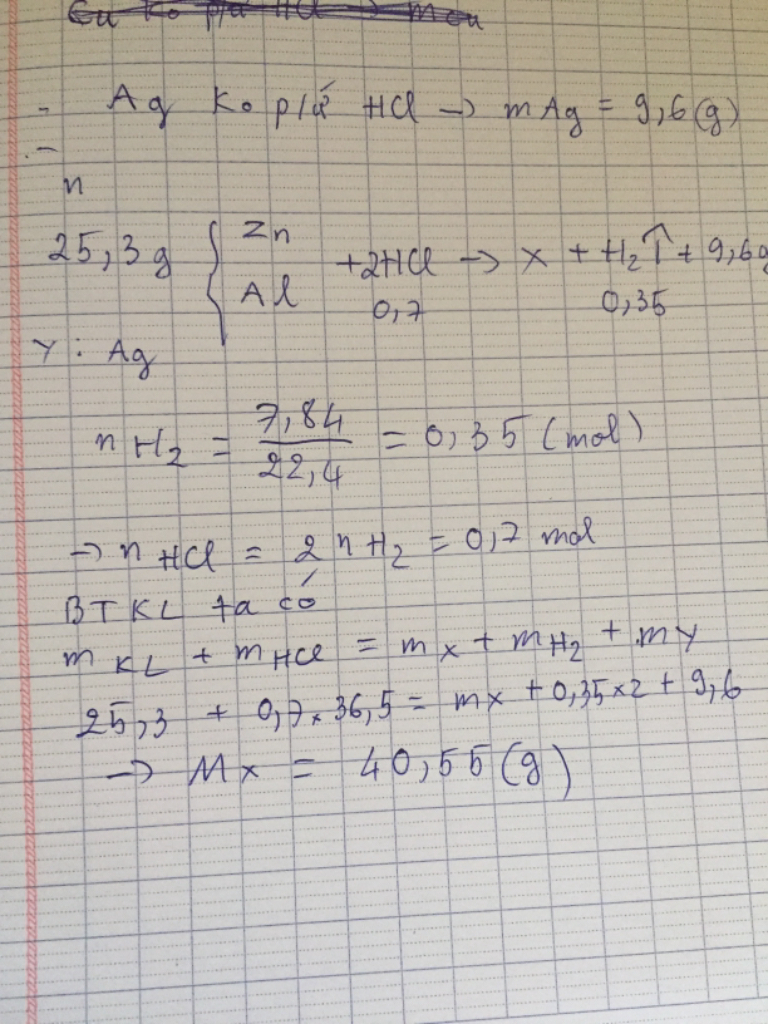 Cu ko p/ứ HCl → mCu
- Ag ko p/ứ HCl → mAg = 9,6 (g)
-
n
25,3g { Zn Al +2HCl → X + H2↑ + 9,6g
0,7 0,35
Y : Ag
nH2 = 7,84/22,4 = 0,35 (mol)
→ nHCl = 2nH2 = 0,7 mol
BTKL ta có
mKL + mHCl = mX + mH2 + mY
25,3 + 0,7×36,5 = mX + 0,35×2 + 9,6
→ MX = 40,55 (g)